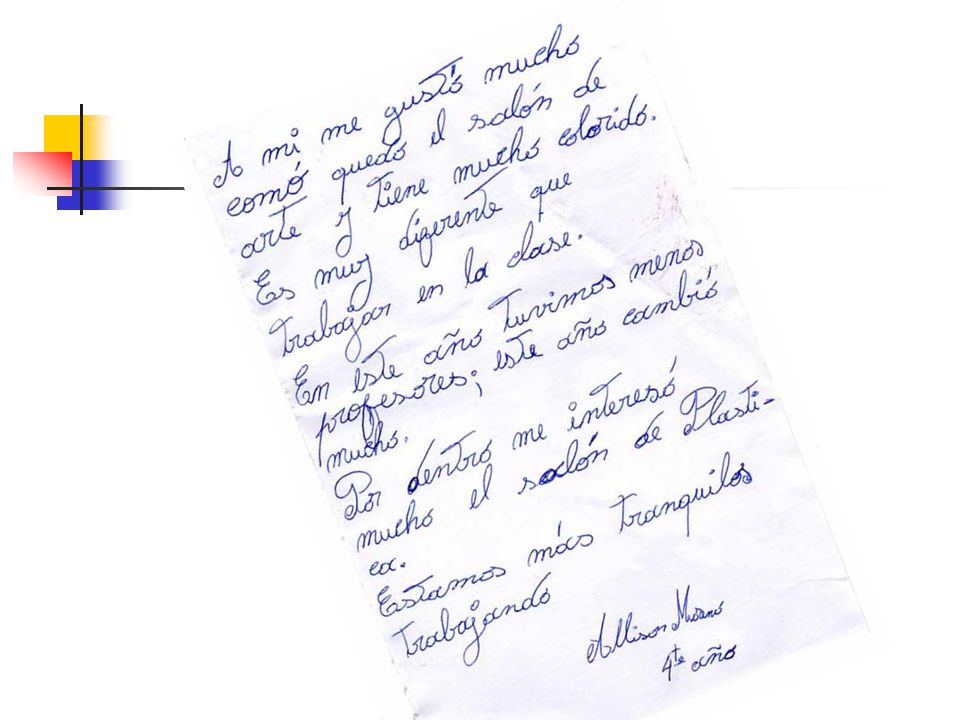 A mi me gustó mucho
comó quedo el salón de
arte y tiene mucho colorido.
Es muy diferente que
trabajar en la clase.
En este año tuvimos menos
profesores; este año cambió
mucho.
Por dentro me interesó
mucho el salón de Plasti-
ca.
Estamos más tranquilos
trabajando
Allison
4te año